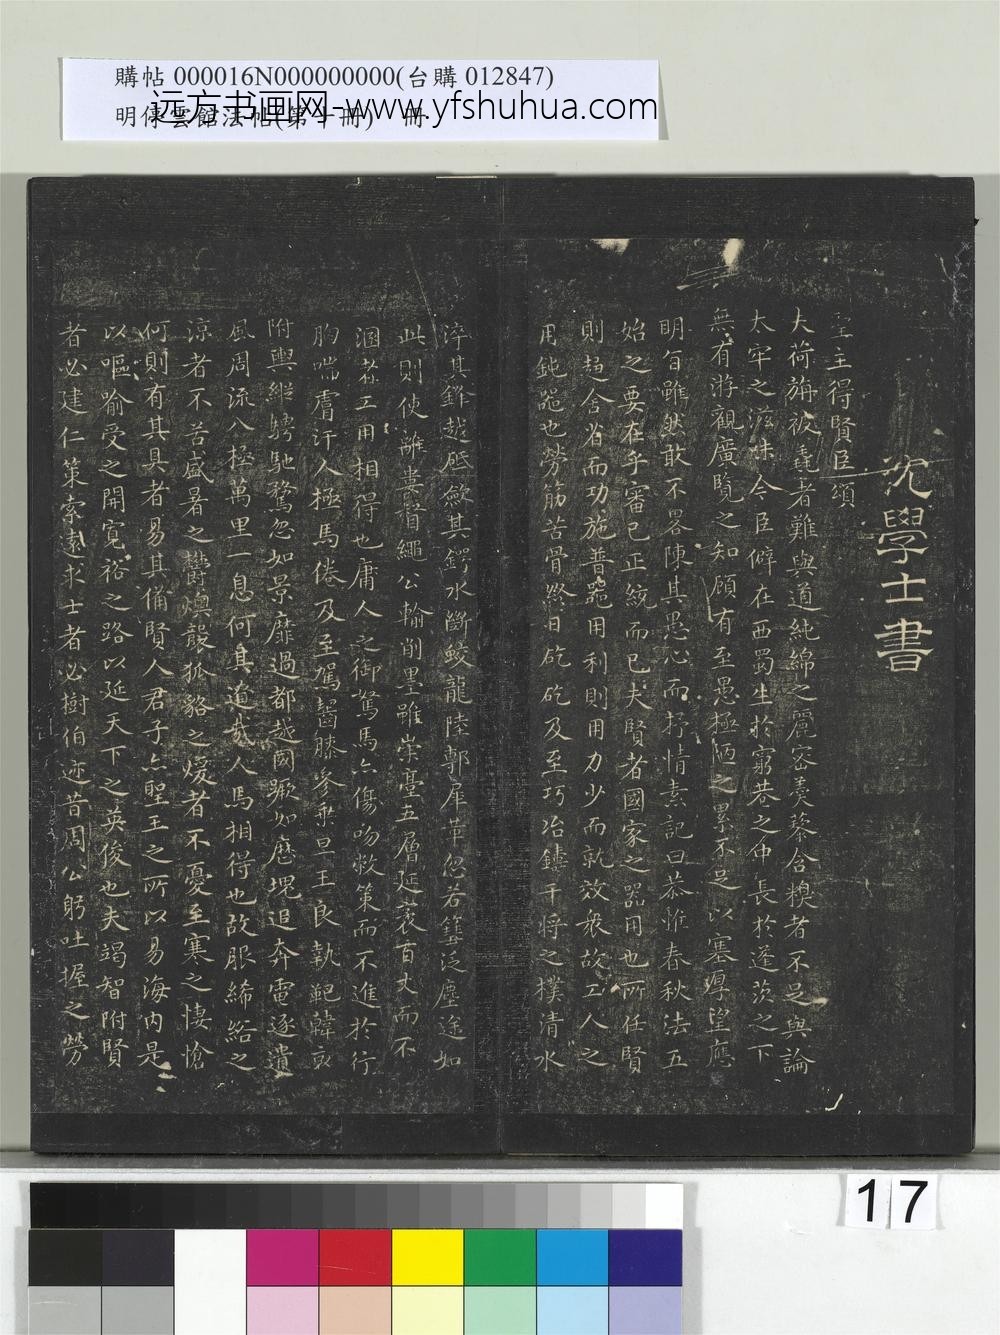 購帖 000016N000000000(台購 012847)
明停雲館法帖(第十冊) 冊
远方书画网-www.yfshuhua.com
沈學士書
聖主得賢臣頌
夫荷旃被毳者難與道純綿之麗密羹藜含糗者不足與論
太牢之滋味今臣僻在西蜀生於窮巷之中長於蓬茨之下
無有游觀廣覽之知顧有至愚極陋之累不足以塞厚望應
明旨雖然敢不畧陳其愚心而抒情素記曰恭惟春秋法五
始之要在乎審己正統而已夫賢者國家之器用也所任賢
則趨舍省而功施普器用利則用力少而就效衆故工人之
用鈍器也勞筋苦骨終日矻矻及至巧冶鑄干將之樸清水
淬其鋒越砥斂其鍔水斷蛟龍陸剸犀革忽若篲泛塵塗如
此則使離婁督繩公輸削墨雖崇臺五層延袤百丈而不
溷者工用相得也庸人之御駑馬亦傷吻敝策而不進於行
胸喘膚汗人極馬倦及至駕齧膝參乘旦王良執靶韓哀
附輿縱騁馳騖忽如景靡過都越國蹶如歷塊追奔電逐遺
風周流八極萬里一息何其遼哉人馬相得也故服絺綌之
涼者不苦盛暑之鬱燠襲狐貉之煖者不憂至寒之悽愴
何則有其具者易其備賢人君子亦聖王之所以易海內是
以嘔喻受之開寬裕之路以延天下之英俊也夫竭智附賢
者必建仁策索遠求士者必樹伯迹昔周公躬吐握之勞
17